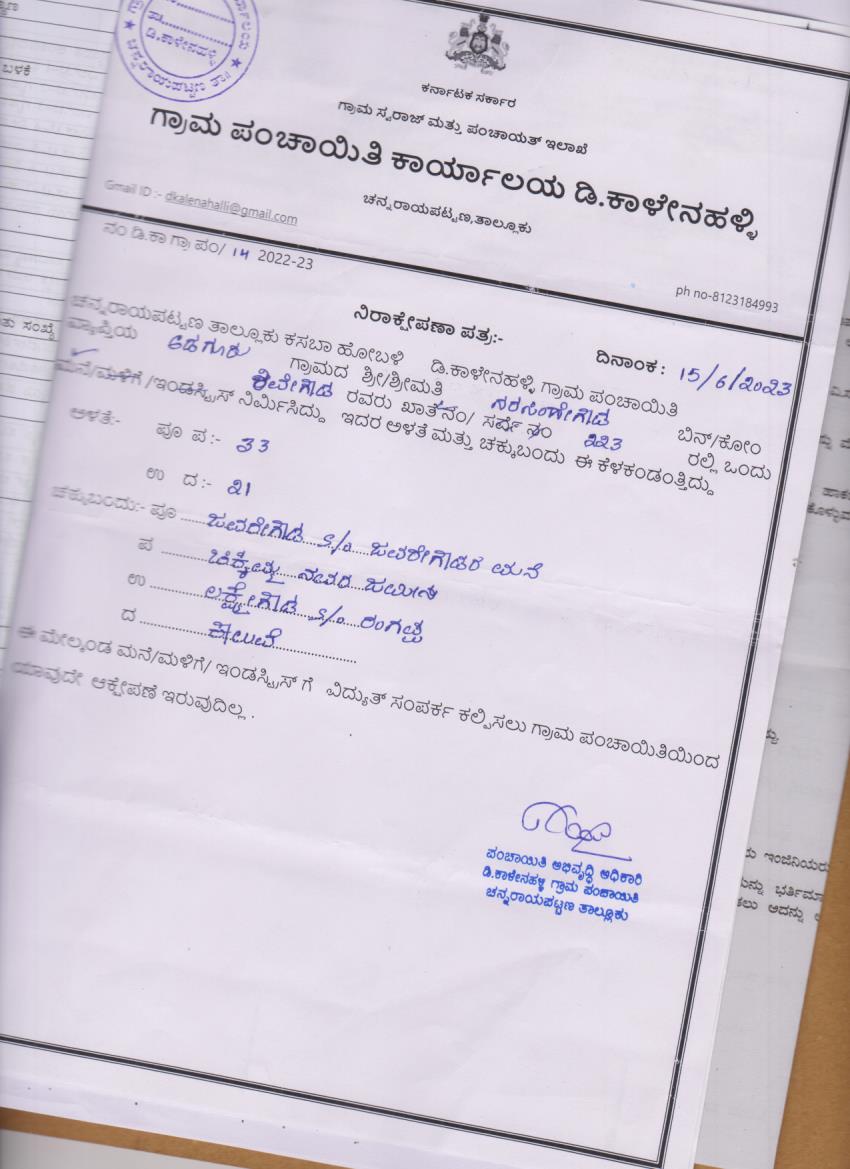 ಡಿ.ಕಾಳೇನಹಳ್ಳಿ
ಚನ್ನರಾಯಪಟ್ಟಣ ತಾ||
ಕರ್ನಾಟಕ ಸರ್ಕಾರ
ಗ್ರಾಮ ಸ್ವರಾಜ್ ಮತ್ತು ಪಂಚಾಯತ್ ಇಲಾಖೆ
ಗ್ರಾಮ ಪಂಚಾಯಿತಿ ಕಾರ್ಯಾಲಯ ಡಿ.ಕಾಳೇನಹಳ್ಳಿ
ಚನ್ನರಾಯಪಟ್ಟಣ,ತಾಲ್ಲೂಕು
Gmail ID :- dkalenahalli@gmail.com
ph no-8123184993
ನಂ ಡಿ.ಕಾ ಗ್ರಾ ಪಂ/ 14 2022-23
ನಿರಾಕ್ಷೇಪಣಾ ಪತ್ರ:-
ದಿನಾಂಕ: 15/6/2023
ಚನ್ನರಾಯಪಟ್ಟಣ ತಾಲ್ಲೂಕು ಕಸಬಾ ಹೋಬಳಿ ಡಿ.ಕಾಳೇನಹಳ್ಳಿ ಗ್ರಾಮ ಪಂಚಾಯಿತಿ
ವ್ಯಾಪ್ತಿಯ ಗ್ರಾಮದ ಶ್ರೀ/ಶ್ರೀಮತಿ ಬಿನ್/ಕೋಂ
ರವರು ಖಾತೆ ನಂ/ ಸರ್ವೆ ನಂ 223 ರಲ್ಲಿ ಒಂದು
ಮನೆ/ಮಳಿಗೆ /ಇಂಡಸ್ಟ್ರಿಸ್ ನಿರ್ಮಿಸಿದ್ದು ಇದರ ಅಳತೆ ಮತ್ತು ಚಕ್ಕುಬಂದು ಈ ಕೆಳಕಂಡಂತ್ತಿದ್ದು
ಅಳತೆ:- ಪೂ ಪ:- 33
ಉ ದ:- 21
ಚಕ್ಕುಬಂದು:- ಪೂ ಜವರೇಗೌಡ S/o ಜವರೇಗೌಡರ ಮನೆ
ಪ ನವರ ಜಮೀನು
ಉ ಲಕ್ಷ್ಮೇಗೌಡ S/o ರಂಗಪ್ಪ
ದ ಕಾಲುವೆ
ಈ ಮೇಲ್ಕಂಡ ಮನೆ/ಮಳಿಗೆ/ ಇಂಡಸ್ಟ್ರಿಸ್ ಗೆ ವಿದ್ಯುತ್ ಸಂಪರ್ಕ ಕಲ್ಪಿಸಲು ಗ್ರಾಮ ಪಂಚಾಯಿತಿಯಿಂದ
ಯಾವುದೇ ಆಕ್ಷೇಪಣೆ ಇರುವುದಿಲ್ಲ .
ಪಂಚಾಯಿತಿ ಅಭಿವೃದ್ಧಿ ಅಧಿಕಾರಿ
ಡಿ.ಕಾಳೇನಹಳ್ಳಿ ಗ್ರಾಮ ಪಂಚಾಯಿತಿ
ಚನ್ನರಾಯಪಟ್ಟಣ ತಾಲ್ಲೂಕು